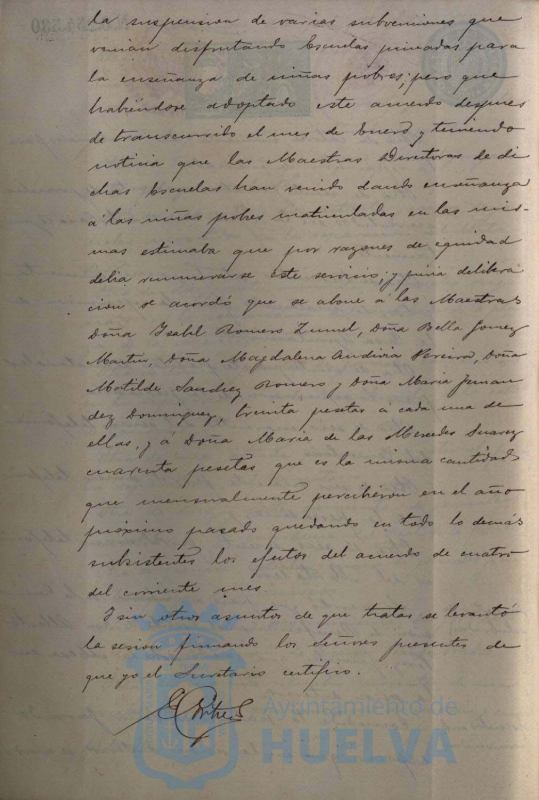 la suspension de varias subvenciones que
venian disfrutando Escuelas privadas para
la enseñanza de niñas pobres, pero que
habiéndose adoptado este acuerdo despues
de transcurrido el mes de Enero y teniendo
noticia que las Maestras Directoras de di
chas Escuelas han venido dando enseñanza
á las niñas pobres matriculadas en las mis-
mas estimaba que por razones de equidad
debia remunerarse este servicio; y previa delibera
cion se acordó que se abone á las Maestras
Doña Isabel Romero Zunel, Doña Bella Gomez
Martin, Doña Magdalena Andivia Pereira, Doña
Matilde Sanchez Romero y Doña Maria Fernan
dez Dominguez, treinta pesetas á cada una de
ellas, y á Doña Maria de las Mercedes Suarez
cuarenta pesetas que es la misma cantidad
que mensualmente percibieron en el año
próximo pasado quedando en todo lo demás
subsistentes los efectos del acuerdo de cuatro
del corriente mes
Y sin otros asuntos de que tratar se levantó
la sesion firmando los Señores presentes de
que yo el Secretario certifico.
Ayuntamiento de
HUELVA